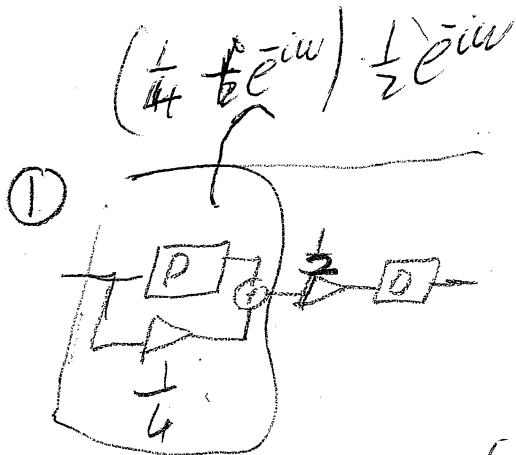 (1/4 + e^{-iω}) 1/2 e^{-iω}
①
D + 1/2 D
1/4